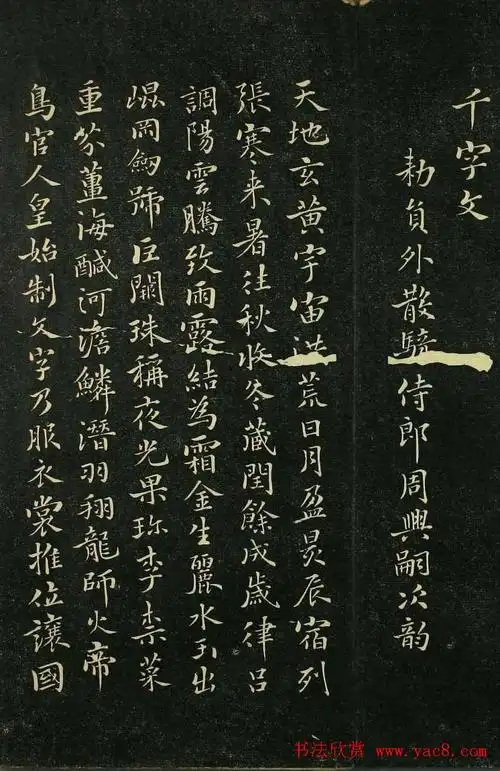 千字文
勑負外散騎侍郎周興嗣次韵
天地玄黄宇宙洪荒日月盈昃辰宿列
張寒来暑往秋收冬蔵閏餘成歲律吕
調陽雲騰致雨露結為霜金生麗水玉出
崐罡劒號巨闕珠稱夜光果珎李柰菜
重芥薑海醎河澹鱗潛羽翔龍師火帝
鳥官人皇始制文字乃服衣裳推位讓國
书法欣赏 www.yac8.com